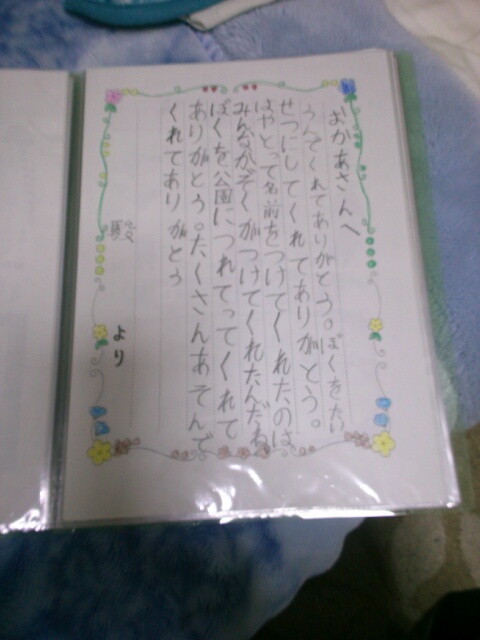 おかあさんへ
うんでくれてありがとう。ぼくをたい
せつにしてくれてありがとう。
はやとって名前をつけてくれたのは
みんなかぞくがつけてくれたんだね
ぼくを公園につれてってくれて
ありがとう。たくさんあそんで
くれてありがとう
より